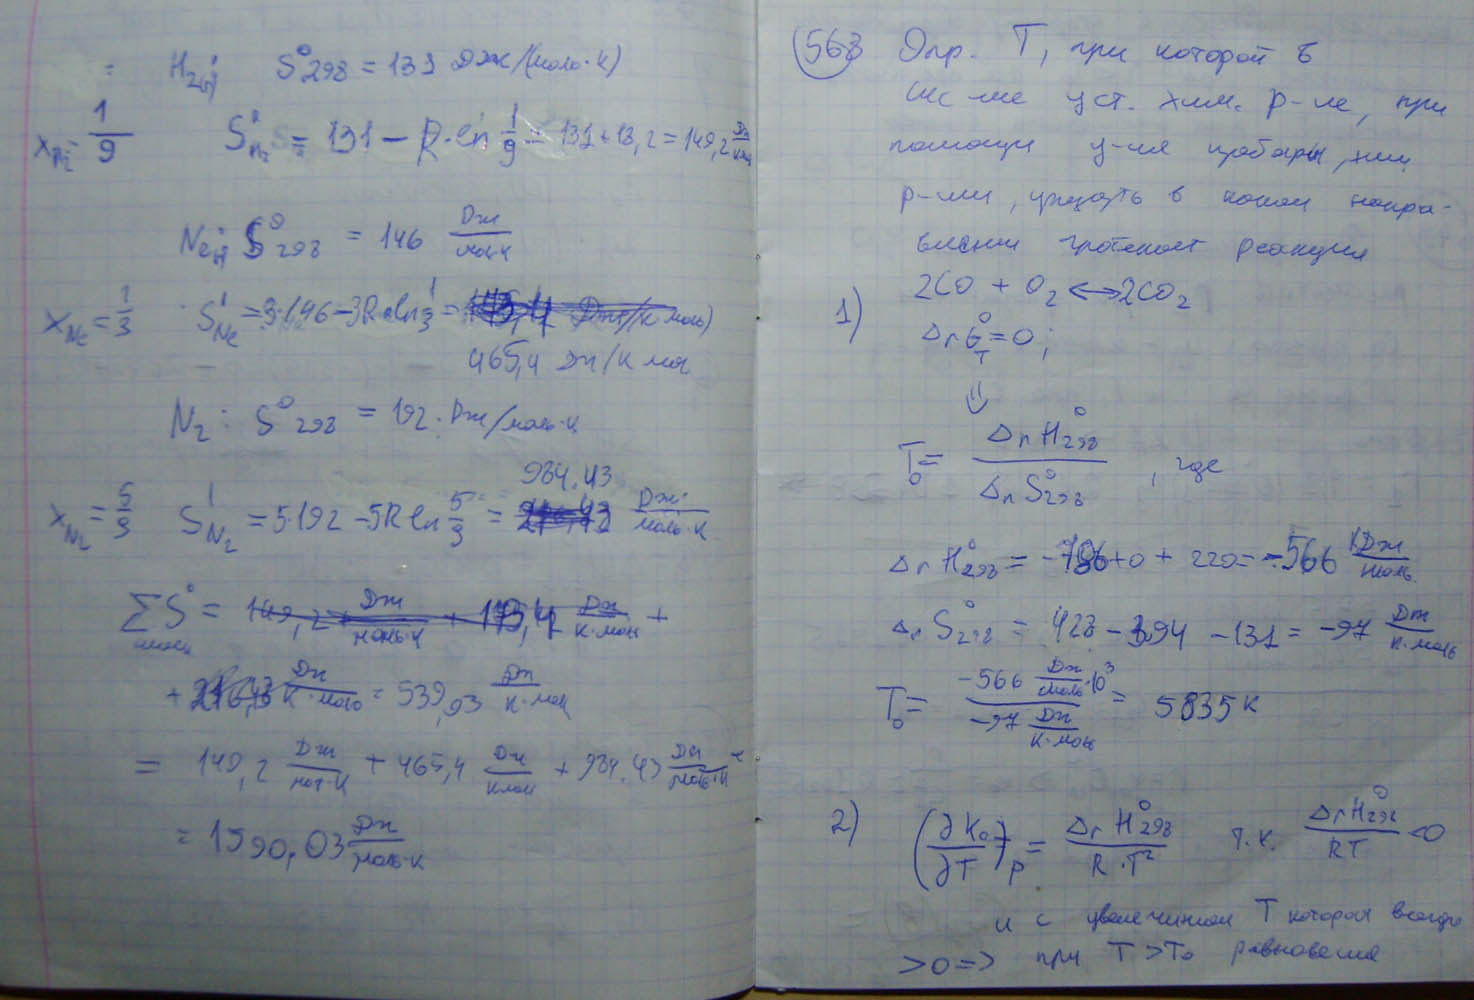 H₂(г): S°₂₉₈ = 131 Дж/(моль·К)
x_H₂ = 1/9 S¹_H₂ = 131 − R·ln 1/9 = 131 + 18,2 = 149,2 Дж/
S°₂₉₈ = 146 Дж/моль·К
x_Ne = 1/3 S¹_Ne = 3·146 − 3R·ln 1/3 =
465,4 Дж/К моль
N₂: S°₂₉₈ = 192 Дж/моль·К
984,43
x_N₂ = 5/9 S¹_N₂ = 5·192 − 5R ln 5/9 = Дж/моль·К
∑S° = 149,2 Дж/моль·К + 173,4 Дж/К·моль +
+ Дж/К·моль = 539,93 Дж/К·моль
= 149,2 Дж/моль·К + 465,4 Дж/К моль + 984,43 Дж/моль·К =
= 1590,03 Дж/моль·К
563 Опр. T, при которой в
системе уст. хим. р-ие, при
помощи ур-ия изобары хим
р-ии, указать в каком напра-
влении протекает реакция
1) 2CO + O₂ ⟷ 2CO₂
ΔrG°_T = 0;
⇓
T₀ = ΔrH°₂₉₈ / ΔrS°₂₉₈ , где
ΔrH°₂₉₈ = −786 + 0 + 220 = −566 кДж/моль
ΔrS°₂₉₈ = 428 − 394 − 131 = −97 Дж/К·моль
T₀ = −566 Дж/моль·10³ / −97 Дж/К·моль = 5835 К
2) (∂K₀/∂T)_P = ΔrH°₂₉₈ / R·T² т.к. ΔrH°₂₉₈ / RT < 0
и с увеличением T которая всегда
>0 => при T > T₀ равновесие